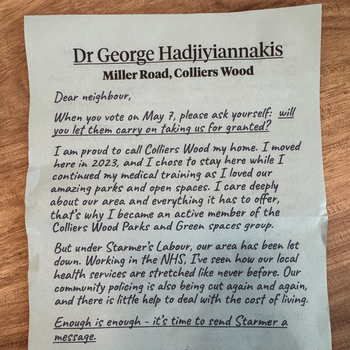 Dr George Hadjiyiannakis
Miller Road, Colliers Wood
Dear neighbour,
When you vote on May 7, please ask yourself: will
you let them carry on taking us for granted?
I am proud to call Colliers Wood my home. I moved
here in 2023, and I chose to stay here while I
continued my medical training as I loved our
amazing parks and open spaces. I care deeply
about our area and everything it has to offer,
that's why I became an active member of the
Colliers Wood Parks and Green spaces group.
But under Starmer's Labour, our area has been let
down. Working in the NHS, I've seen how our local
health services are stretched like never before. Our
community policing is also being cut again and again,
and there is little help to deal with the cost of living.
Enough is enough - it's time to send Starmer a
message.